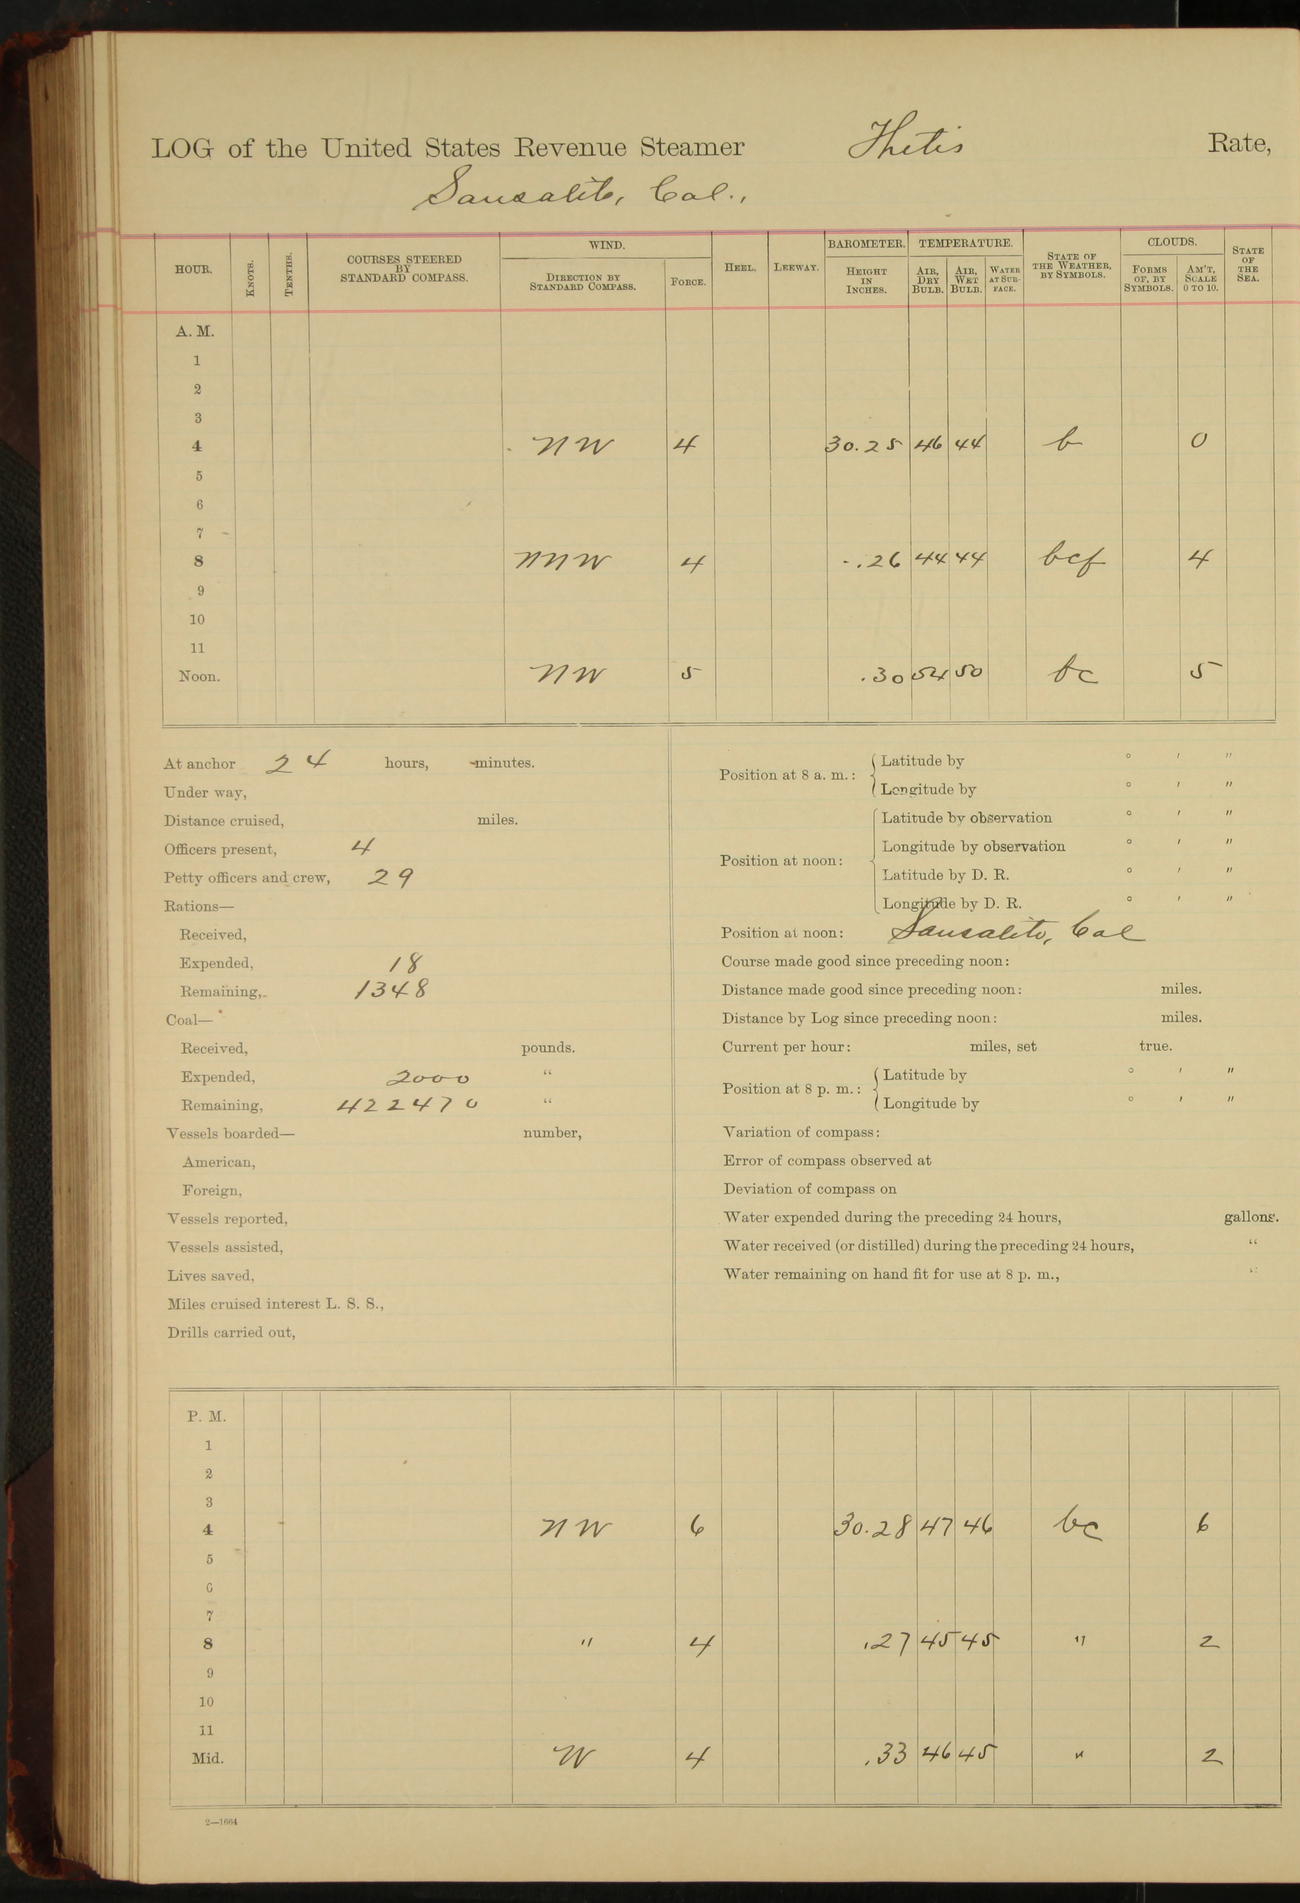 LOG of the United States Revenue Steamer Thetis Rate,
Sausalito, Cal.,
HOUR. KNOTS. TENTHS. COURSES STEERED BY STANDARD COMPASS. WIND. DIRECTION BY STANDARD COMPASS. FORCE. HEEL. LEEWAY. BAROMETER. HEIGHT IN INCHES. TEMPERATURE. AIR, DRY BULB. AIR, WET BULB. WATER AT SURFACE. STATE OF THE WEATHER, BY SYMBOLS. CLOUDS. FORMS OF, BY SYMBOLS. AM'T, SCALE 0 TO 10. STATE OF THE SEA.
A. M.
1
2
3
4 NW 4 30.25 46 44 b 0
5
6
7
8 NNW 4 -.26 44 44 bcf 4
9
10
11
Noon. NW 5 .30 54 50 bc 5
At anchor 24 hours, - minutes.
Under way,
Distance cruised, miles.
Officers present, 4
Petty officers and crew, 29
Rations—
Received,
Expended, 18
Remaining, 1348
Coal—
Received, pounds.
Expended, 2000 "
Remaining, 422470 "
Vessels boarded— number,
American,
Foreign,
Vessels reported,
Vessels assisted,
Lives saved,
Miles cruised interest L. S. S.,
Drills carried out,
Position at 8 a. m.: Latitude by ° ′ ″
Longitude by ° ′ ″
Position at noon: Latitude by observation ° ′ ″
Longitude by observation ° ′ ″
Latitude by D. R. ° ′ ″
Longitude by D. R. ° ′ ″
Position at noon: Sausalito, Cal
Course made good since preceding noon:
Distance made good since preceding noon: miles.
Distance by Log since preceding noon: miles.
Current per hour: miles, set true.
Position at 8 p. m.: Latitude by ° ′ ″
Longitude by ° ′ ″
Variation of compass:
Error of compass observed at
Deviation of compass on
Water expended during the preceding 24 hours, gallons.
Water received (or distilled) during the preceding 24 hours, "
Water remaining on hand fit for use at 8 p. m., "
P. M.
1
2
3
4 NW 6 30.28 47 46 bc 6
5
6
7
8 " 4 .27 45 45 " 2
9
10
11
Mid. W 4 .33 46 45 " 2
2—1664